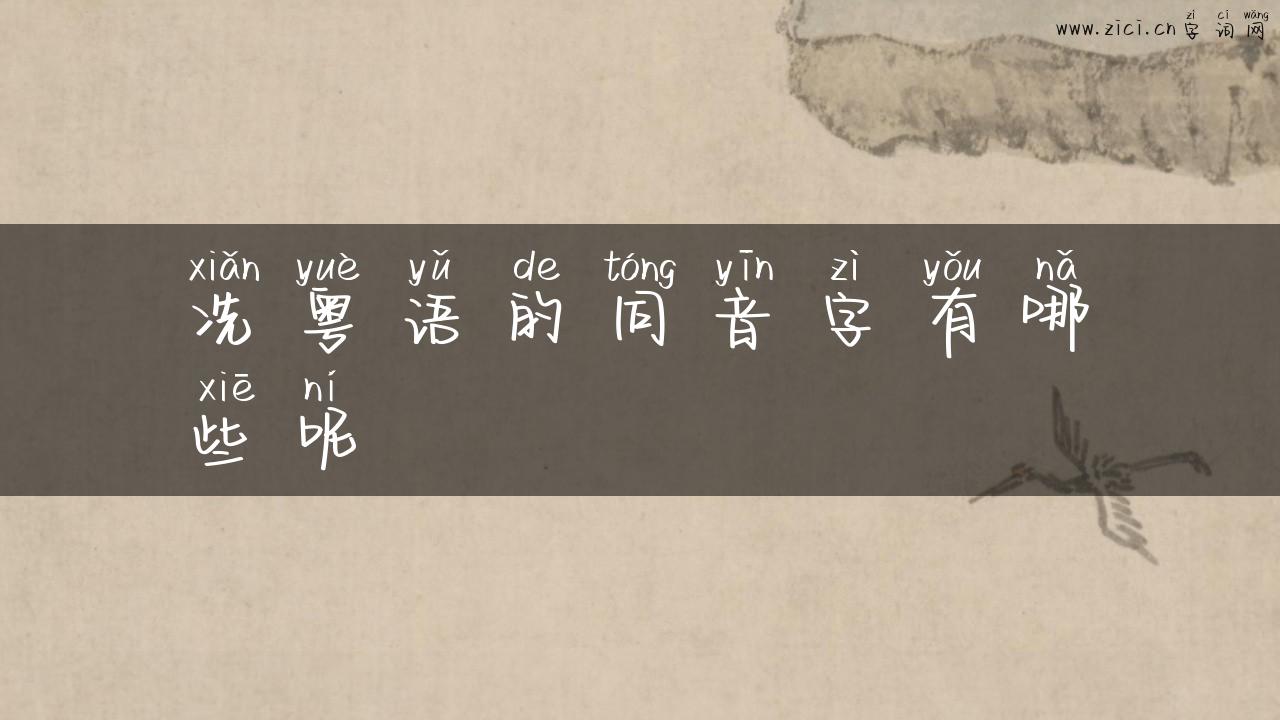 zì cí wǎng
www.zici.cn 字 词 网
xiǎn yuè yǔ de tóng yīn zì yǒu nǎ
冼 粤 语 的 同 音 字 有 哪
xiē ní
些 呢